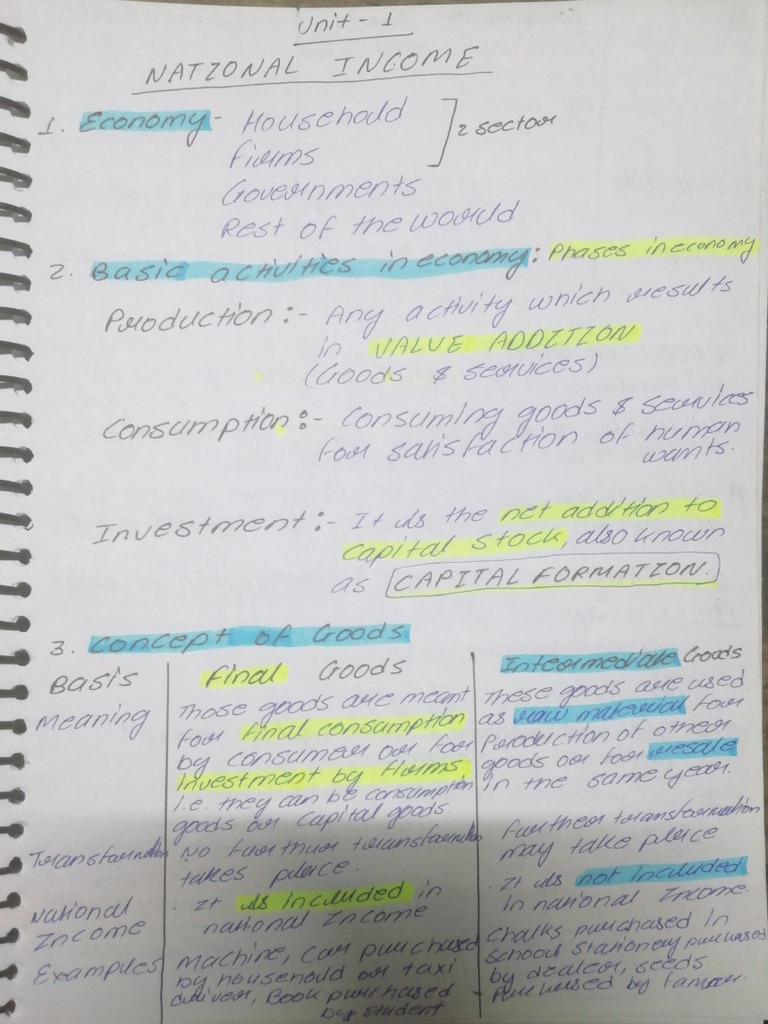 Unit - 1
NATIONAL INCOME
1. Economy - Household
Firms
] 2 sector
Governments
Rest of the world
2. Basic activities in economy: Phases in economy
Production :- Any activity which results
in VALUE ADDITION
(Goods & services)
Consumption :- Consuming goods & services
for satisfaction of human
wants.
Investment :- It is the net addition to
capital stock, also known
as CAPITAL FORMATION.
3. Concept of Goods
Basis
Final Goods
Intermediate Goods
Meaning
Those goods are meant
for final consumption
by consumer or for
Investment by firms
i.e. they can be consumption
goods or capital goods.
These goods are used
as raw material for
Production of other
goods or for resale
in the same year.
Transformation
No further transformation
takes place.
further transformation
may take place
National
Income
. It is included in
national Income
. It is not included
in national Income.
Examples
Machine, Car purchased
by household or taxi
driver, Book purchased
by student
Chalks purchased in
school stationery purchased
by dealer, seeds
purchased by farmer.